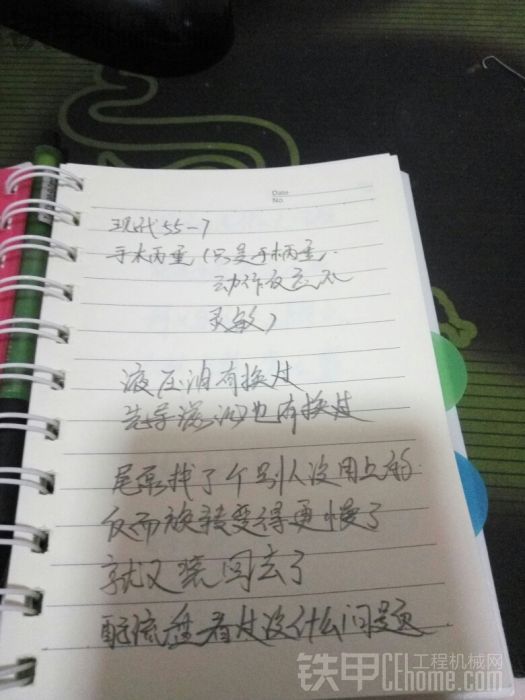 Date
No
现代55-7
手柄重(只是手柄重
动作反应不
灵敏)
液压油有换过
先导滤网也有换过
尾泵找了个别人没用上的
反而旋转变得更慢了
就又装回去了
配流盘看过没什么问题
铁甲工程机械网
CEhome.com